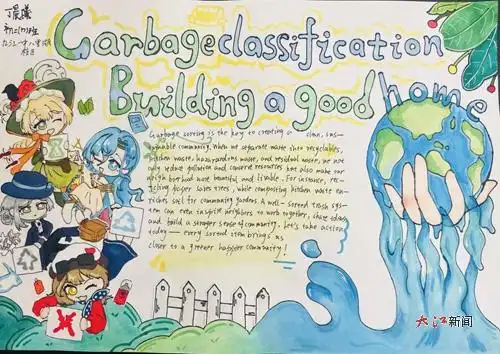 丁晨曦
初二(7)班
九江一中八里湖
校区
Garbage classification
Building a good home
Garbage sorting is the key to creating a clean, sus-
ainable community. When we separate waste into recyclables,
kitchen waste, hazardous waste, and residual waste, we not
only reduce pollution and conserve resources but also make our
neighborhood more beautiful and livable. For instance, recy-
cling paper saves trees, while composting kitchen waste en-
riches soil for community gardens. A well-sorted trash sys-
tem can even inspire neighbors to work together, share ideas
and build a stronger sense of community. Let's take action
today — every sorted item brings us
closer to a greener happier community!
大江新闻